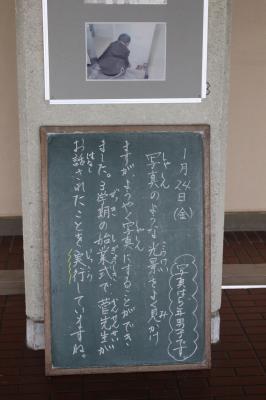 1月24日(金)
写真は5年男子です
写真のような光景をよく見かけ
ますが、ようやく写真にすることができ
ました。3学期の始業式で菅先生が
お話されたことを実行していますね。